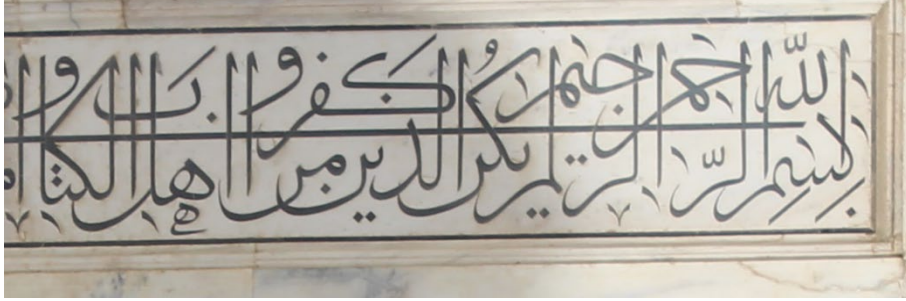 بسم الله الرحمن الرحيم لم يكن الذين كفروا من اهل الكتاب و